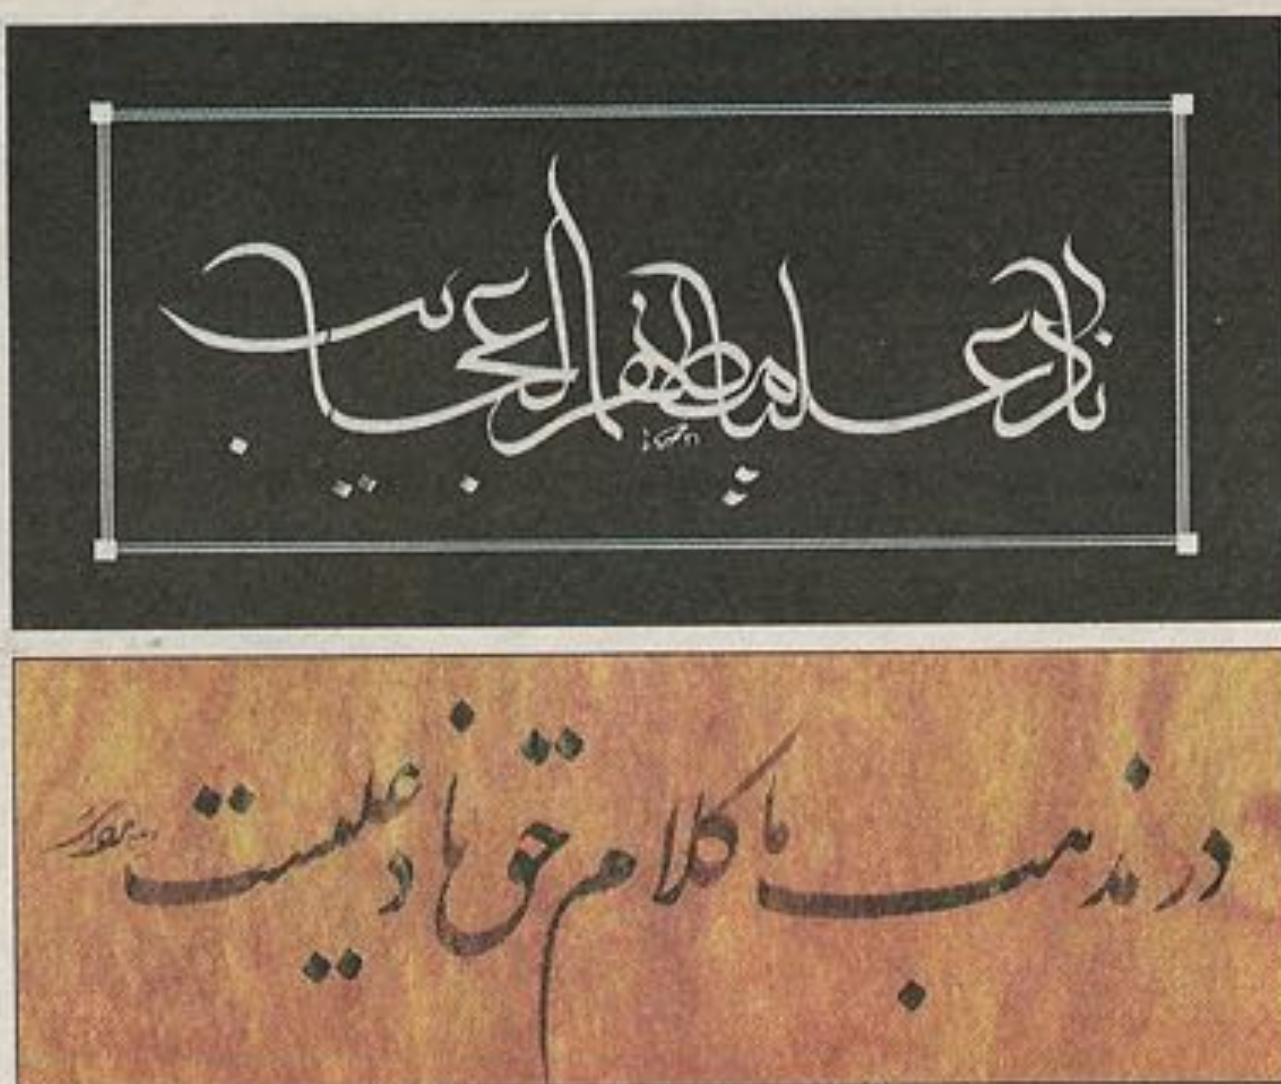 ناد علیا مظهر العجایب
در مذهب ما کلام حق ناد علیست